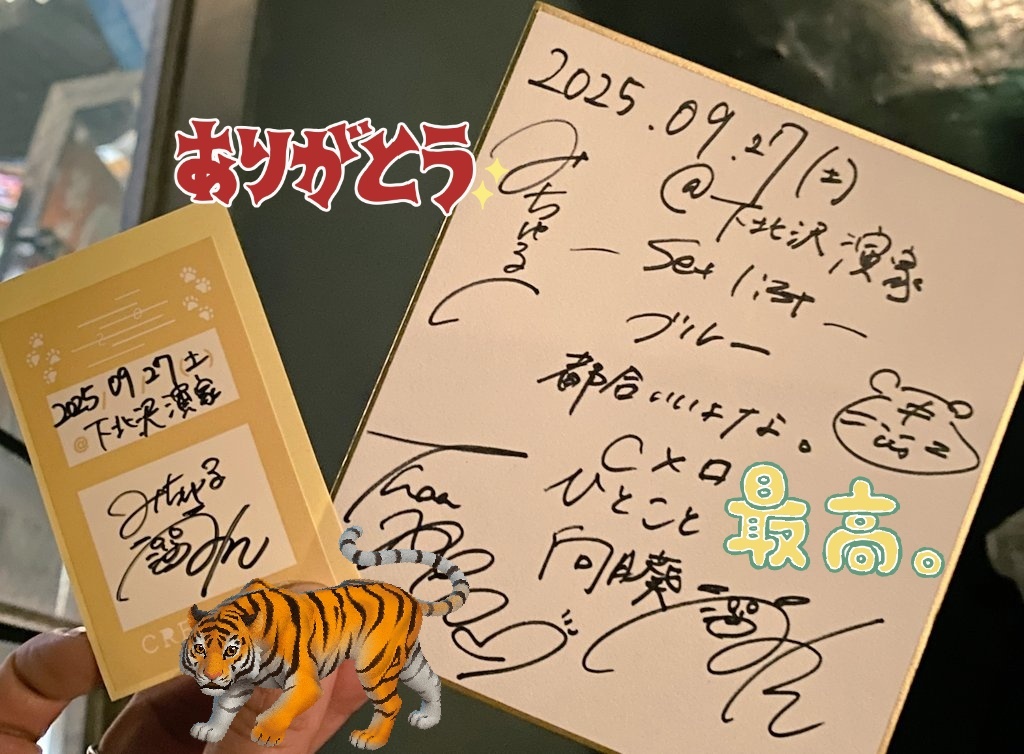 ありがとう
2025.09.27(土)
@下北沢演家
みちゅる
- Set list -
ブルー
都合いいよな。
C×ロ
ひとこと
向日葵
最高。
2025/09/27(土)
@下北沢演家
みちゅる